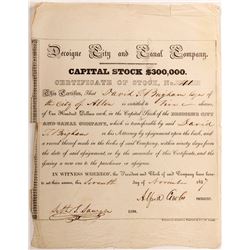 Decoique City and Canal Company.
CAPITAL STOCK $300,000.
CERTIFICATE OF STOCK, No.
This Certifies, That David S Brigham Esqr of
the City of Alton is entitled to Five shares
of One Hundred Dollars each, in the Capital Stock of the DECOIQUE CITY
AND CANAL COMPANY, which is transferable by said David
S Brigham or his Attorney by endorsement upon the back, and
a record thereof made in the books of said Company, within ninety days from
the date of said endorsement, or by the surrender of this Certificate, and the
issuing a new one to the purchaser or assignee.
IN WITNESS WHEREOF, the President and Clerk of said Company have hereto
set their names, this Seventh day of November 183
CLERK.